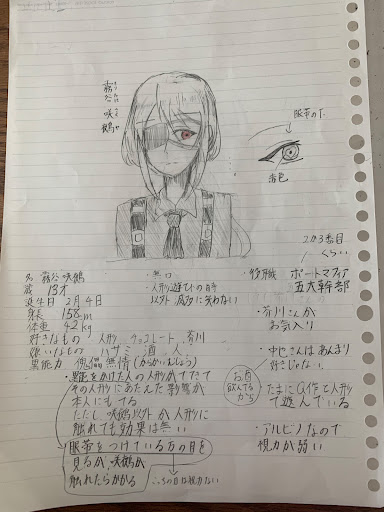 霧谷 咲鶴
眼帯の下
赤色
2か3番目
くらい
名 霧谷 咲鶴
歳 13才
誕生日 2月4日
身長 158cm
体重 42kg
好きなもの 人形 チョコレート 芥川
嫌いなもの ハサミ 酒 人
異能力 傀儡無情
・無口
・人形遊びの時
以外滅多に笑わない
・役職 ポートマフィア
五大幹部
・芥川さんが
お気入り
・中也さんはあんまり
好きじゃない
お酒
飲んでる
から
たまにQ作と人形
で遊んでいる
・アルビノなので
視力が弱い
をかけた人の人形がでてきて
その人形にあたえた影響が
本人にでる
ただし、咲鶴以外が人形に
触れても効果は無い
眼帯をつけている方の目を
見るか、咲鶴が
触れたらかかる
こっちの目は視力ない